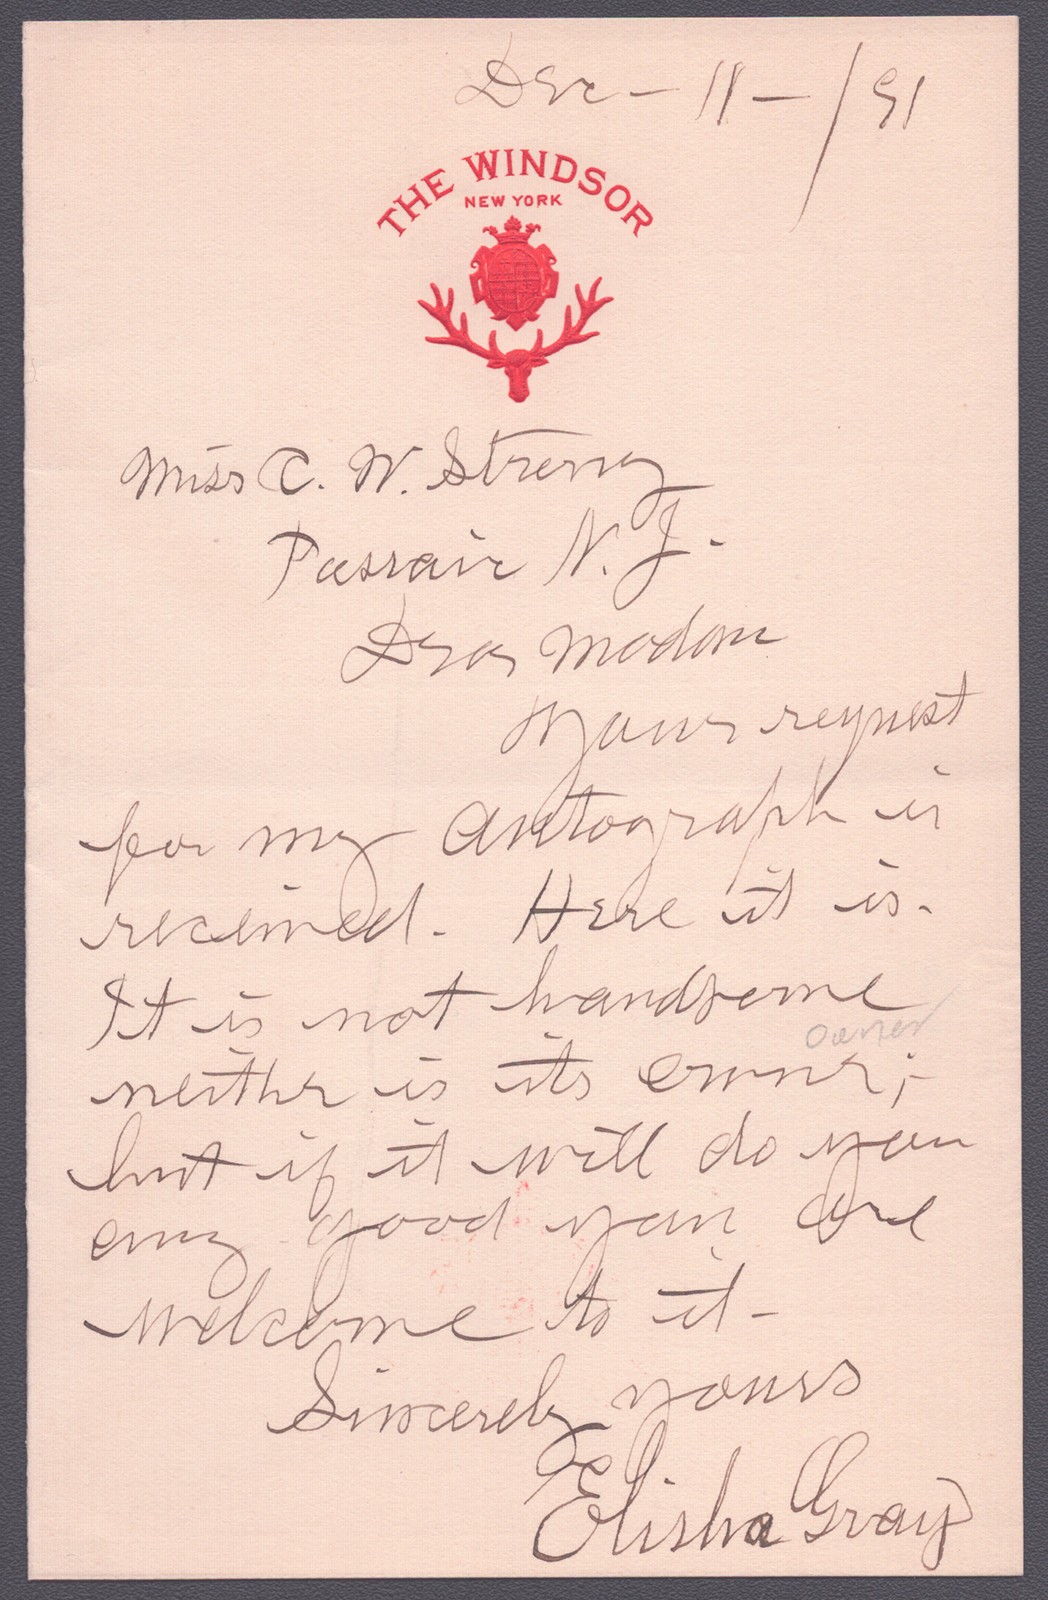 Dec - 11 - /91
THE WINDSOR
NEW YORK
Miss C. W. Strong
Passaic N. J.
Dear Madam
Your request
for my Autograph is
received. Here it is.
It is not handsome
owner
neither is its owner;-
but if it will do you
any good you are
welcome to it -
Sincerely yours
Elisha Gray